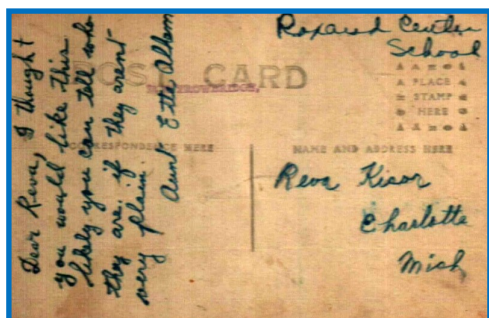 Roxand Center
School
POST CARD
PLACE
STAMP
HERE
CORRESPONDENCE HERE
NAME AND ADDRESS HERE
Dear Reva, I thought
you would like this
likely you can tell who
they are. if they arent
very plain
Aunt Etta Allson
Reva Kisor
Charlotte
Mich